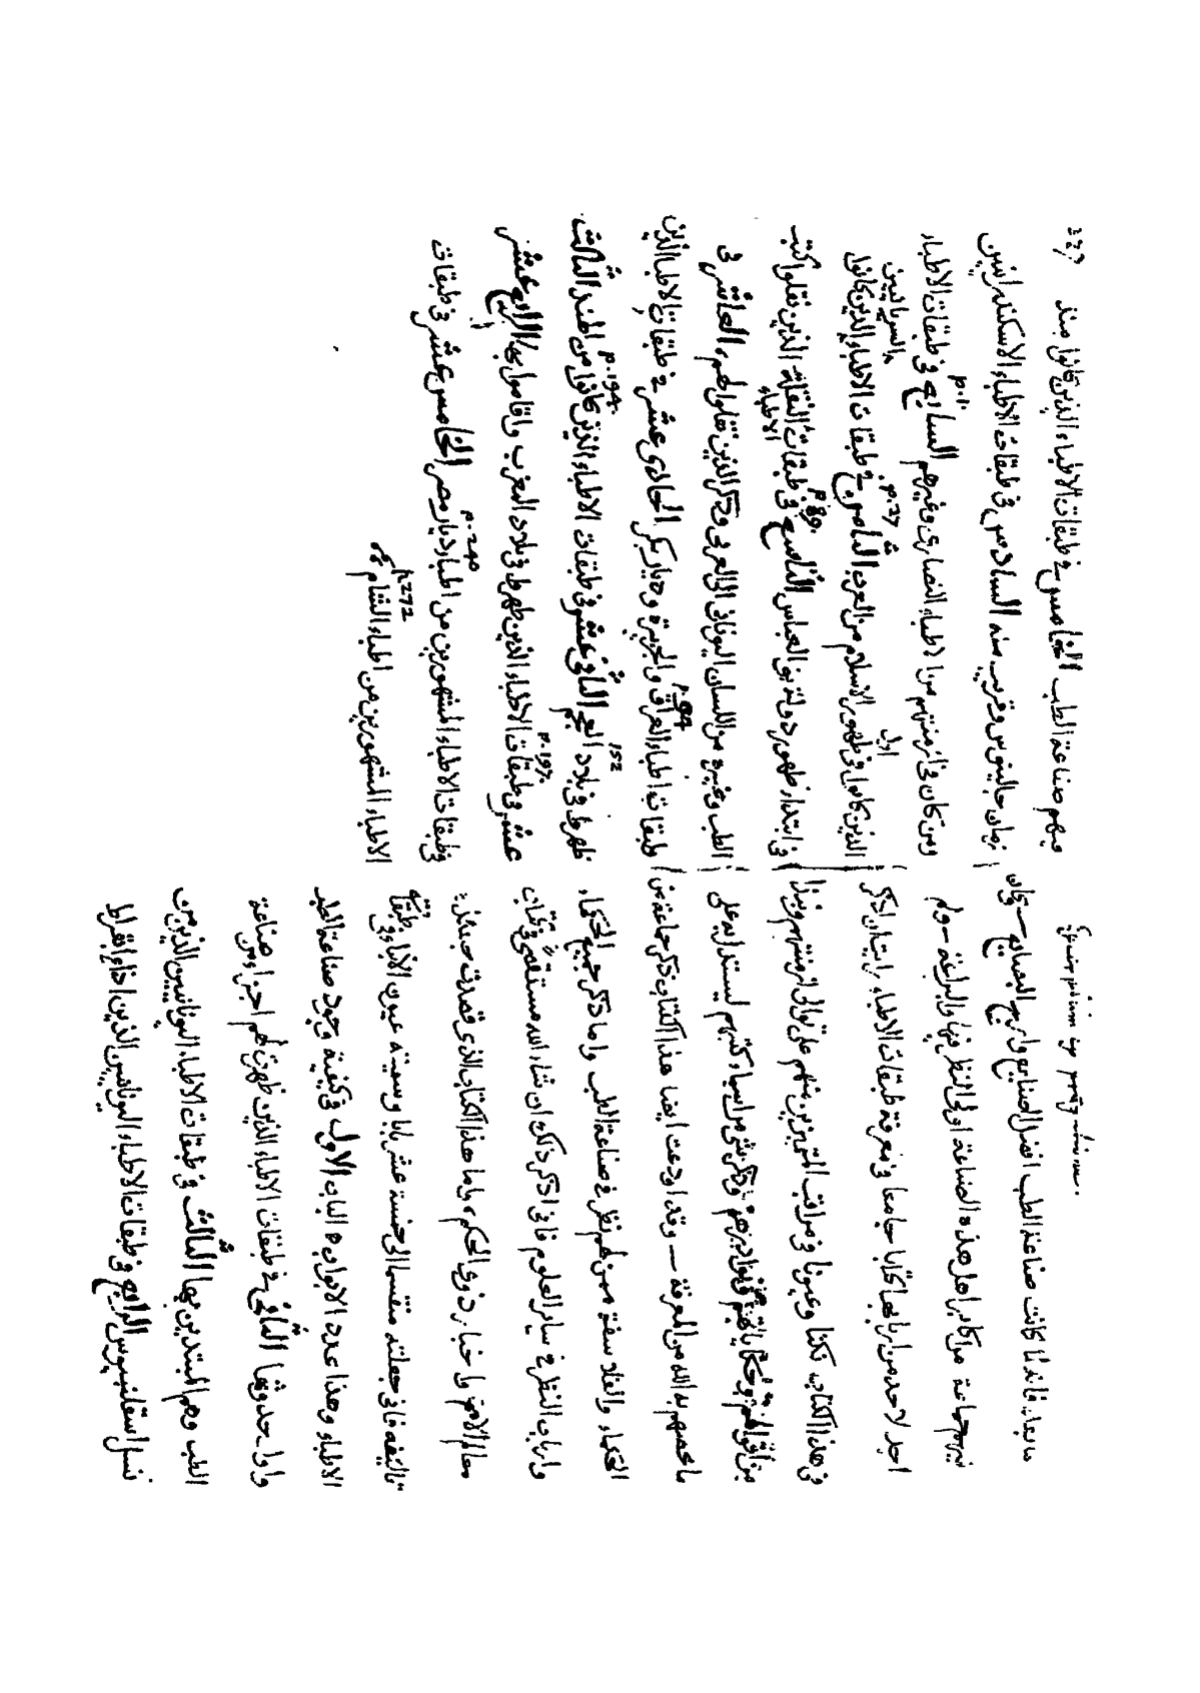 ما بعد فانه لما كانت صناعة الطب افضل الصنايع واربح البضايع - وكان
فيهم جماعة من اكابر اهل هذه الصناعة اولى النظر فيها والبراعة - ولم
اجد لاحد من اربابها كتابا جامعا فى معرفة طبقات الاطباء رايت ان اذكر
فى هذا الكتاب نكتا وعيونا فى مراتب المتميزين منهم على توالى ازمنتهم ونبذا
من اقوالهم وحكاياتهم ونوادرهم وذكر شى من اسماء كتبهم ليستدل به على
ما خصهم به الله من المعرفة - وقد اودعت ايضا هذا الكتاب ذكر جماعة من
الحكماء والفلاسفة ممن لهم نظر فى صناعة الطب واما ذكر جميع الحكماء
وارباب النظر فى ساير العلوم فانى اذكر ذلك ان شاء الله مستقصى فى كتاب
معالم الامم واخبار ذوى الحكم، واما هذا الكتاب الذى قصدت حينئذ
تاليفه فانى جعلته منقسما الى خمسة عشر بابا وسميته عيون الانباء فى طبقات
الاطباء وهذا عدد الابواب الباب الاول فى كيفية وجود صناعة الطب
واول حدوثها الثانى فى طبقات الاطباء الذين ظهرت لهم اجزاء من صناعة
الطب وهم المبتدين بها الثالث فى طبقات الاطباء اليونانيين الذين من
نسل اسقلبيوس الرابع فى طبقات الاطباء اليونانيين الذين اذاع ابقراط
فيهم صناعة الطب الخامس فى طبقات الاطباء الذين كانوا منذ
زمان جالينوس وقريب منه السادس فى طبقات الاطباء الاسكندرانيين
ومن كان فى ازمنتهم من الاطباء النصارى وغيرهم السابع فى طبقات الاطباء
الذين كانوا فى اول ظهور الاسلام من العرب الثامن فى طبقات الاطباء السريانيين الذين كانوا
فى ابتداء ظهور دولة بنى العباس التاسع فى طبقات الاطباء النقلة الذين نقلوا كتب
الطب وغيره من اللسان اليونانى الى العربى وذكر الذين نقلوا لهم، العاشر فى
طبقات اطباء العراق والجزيرة وديار بكر الحادى عشر فى طبقات الاطباء الذين
ظهروا فى بلاد العجم الثانى عشر فى طبقات الاطباء الذين كانوا من الهند الثالث
عشر فى طبقات الاطباء الذين ظهروا فى بلاد المغرب واقاموا بها الرابع عشر
فى طبقات الاطباء المشهورين من اطباء ديار مصر الخامس عشر فى طبقات
الاطباء المشهورين من اطباء الشام